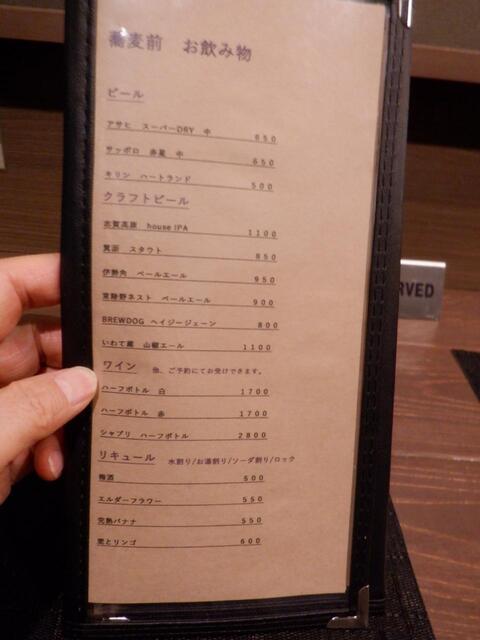 蕎麦前 お飲み物
ビール
アサヒ スーパーDRY 中 650
サッポロ 赤星 中 650
キリン ハートランド 500
クラフトビール
志賀高原 house IPA 1100
箕面 スタウト 850
伊勢角 ペールエール 950
常陸野ネスト ペールエール 900
BREWDOG ヘイジージェーン 800
いわて蔵 山椒エール 1100
ワイン 他、ご予約にてお受けできます。
ハーフボトル 白 1700
ハーフボトル 赤 1700
シャブリ ハーフボトル 2800
リキュール 水割り/お湯割り/ソーダ割り/ロック
梅酒 500
エルダーフラワー 550
完熟バナナ 550
とリンゴ 600
RVED